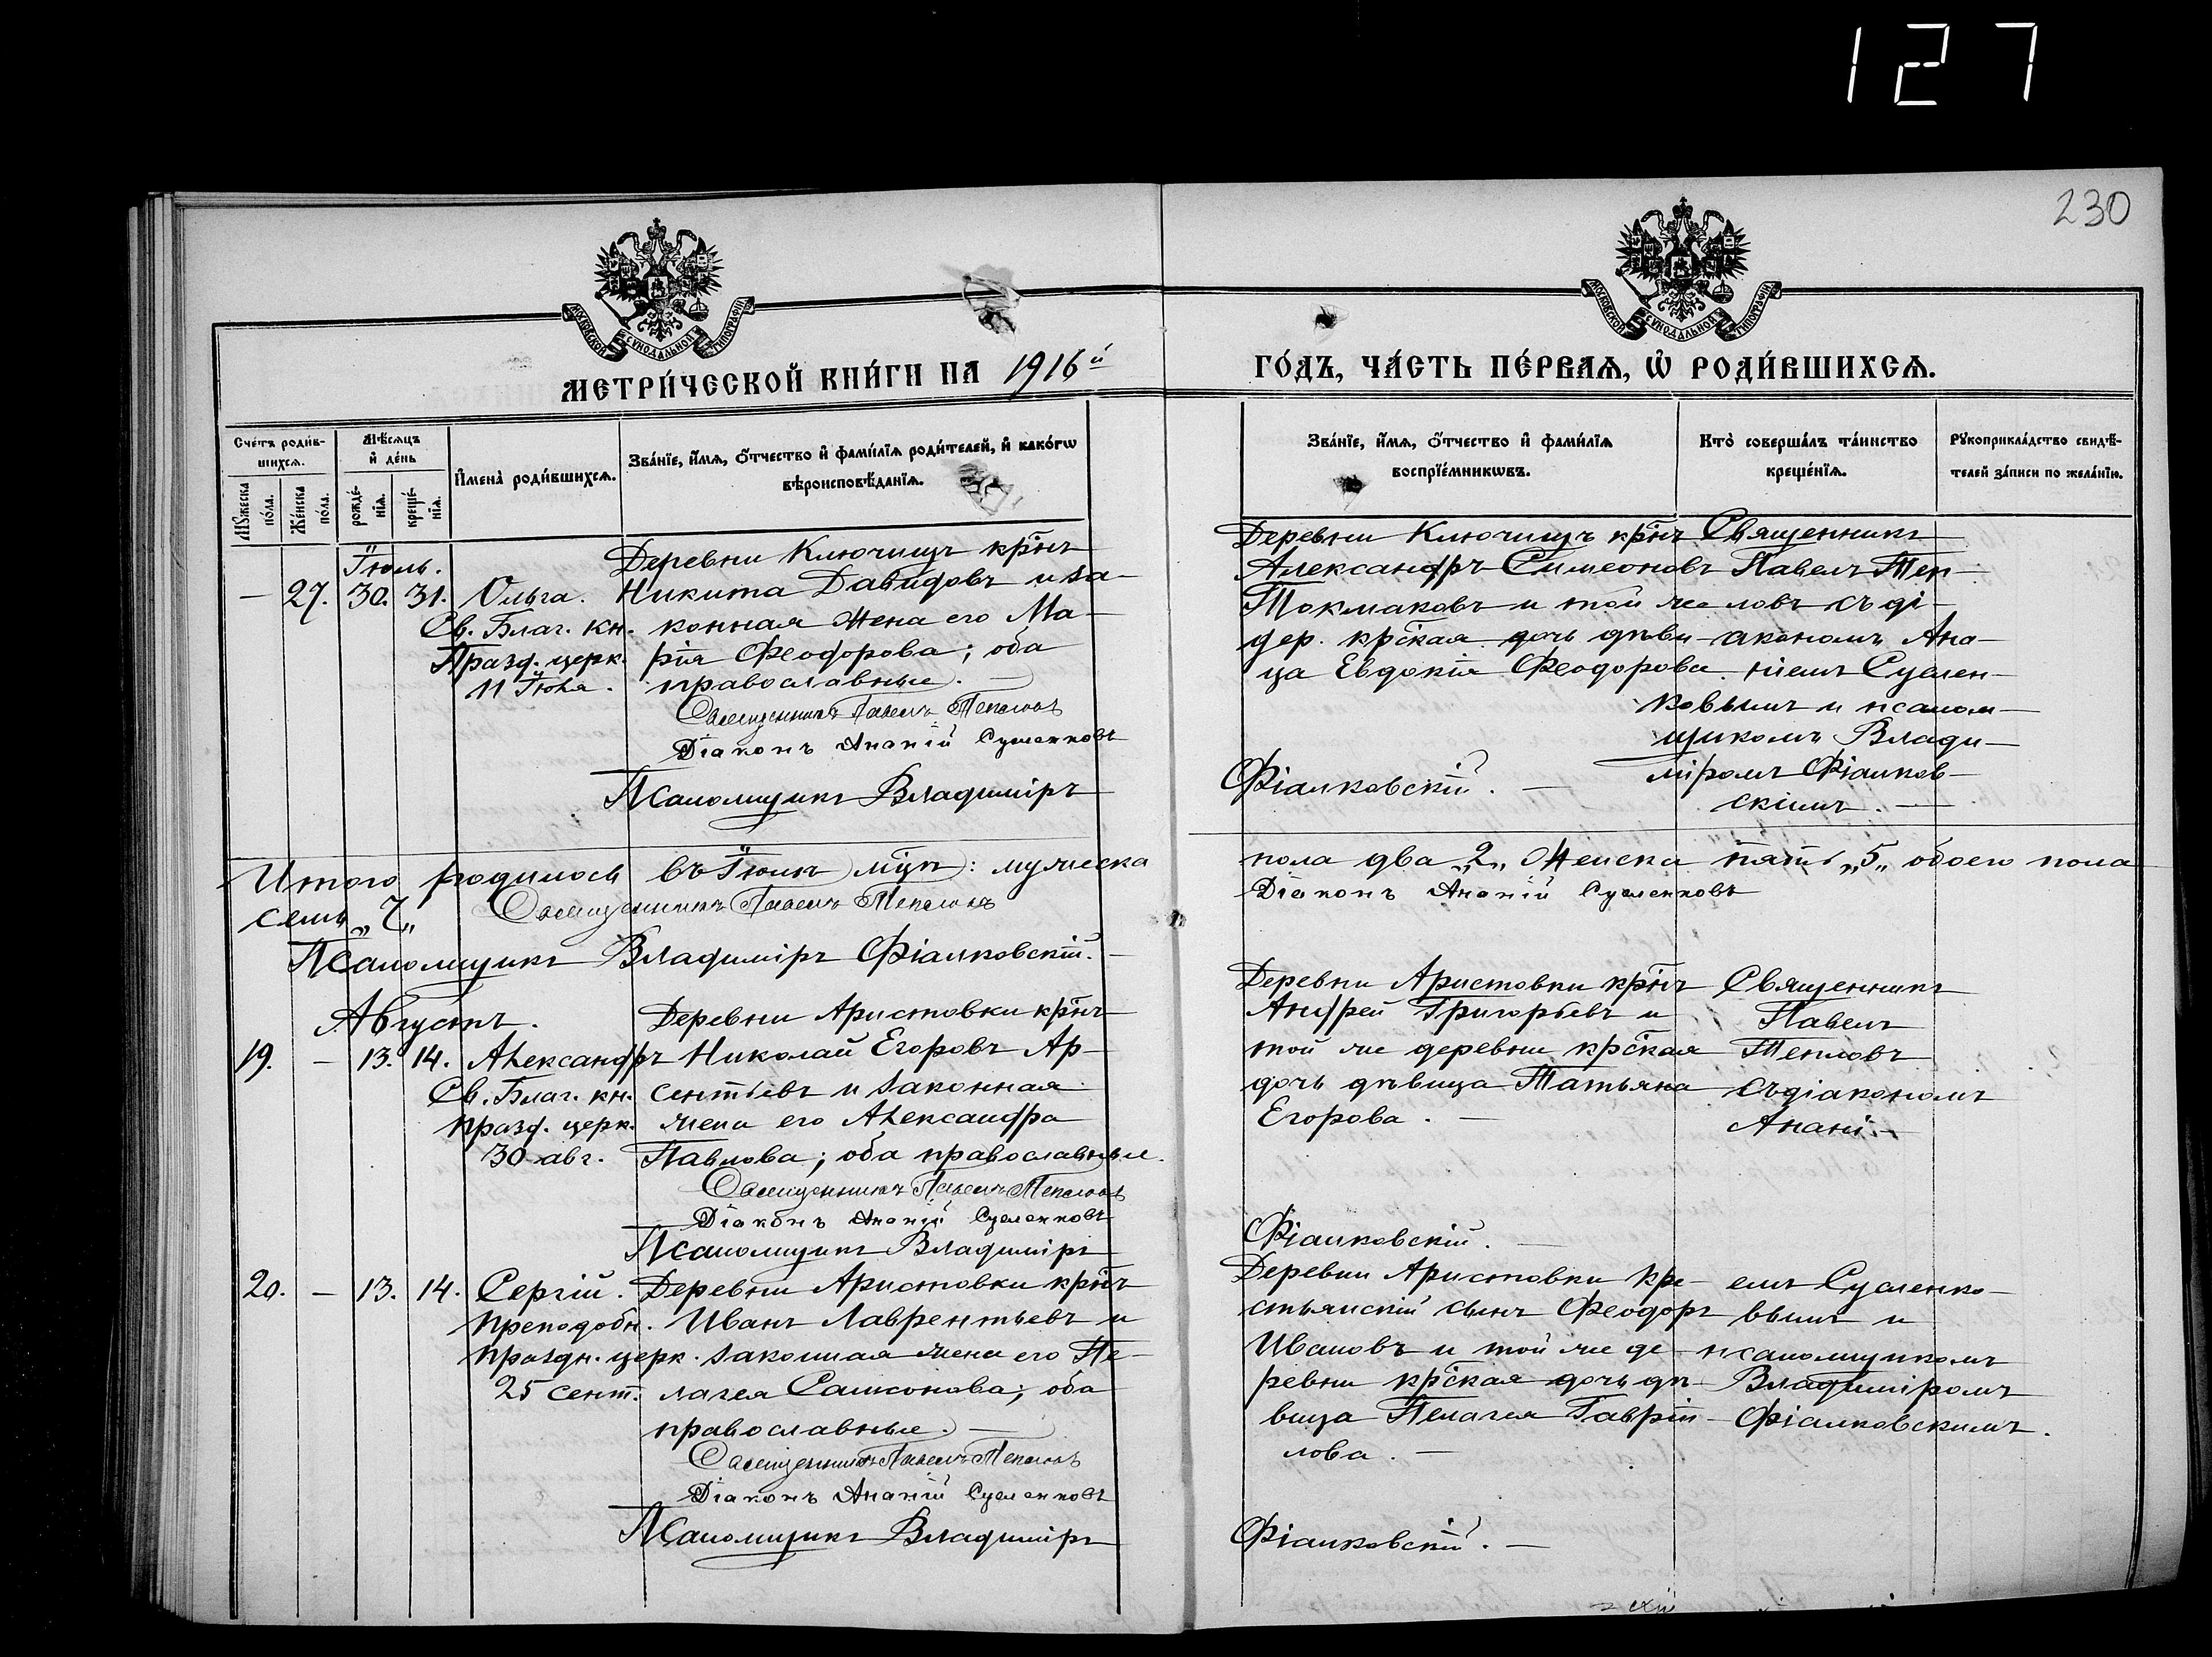 127
230
МОСКОВСКОЙ СѴНОДАЛЬНОЙ ТИПОГРАФІИ
МОСКОВСКОЙ СѴНОДАЛЬНОЙ ТИПОГРАФІИ
МЕТРИ́ЧЕСКОЙ КНИ́ГИ НА 1916й
ГО́ДЪ, ЧА́СТЬ ПЕ́РВАѦ, Ѽ РОДИ́ВШИХСѦ.
Сче́тъ роди́в-
шихсѧ.
Мѣ́сѧцъ
и҆ де́нь
Мꙋ́жеска
по́ла.
Же́нска
по́ла.
рожде́-
нїѧ.
креще́-
нїѧ.
И҆мена̀ роди́вшихсѧ.
Зва́нїе, и҆́мѧ, ѻ҆́тчество и҆ фами́лїѧ роди́телей, и҆ како́гѡ
вѣроисповѣ́данїѧ.
Зва́нїе, и҆́мѧ, ѻ҆́тчество и҆ фами́лїѧ
воспрїе́мникѡвъ.
Кто̀ соверша́лъ та́инство
креще́нїѧ.
Рꙋкоприкла́дство свидѣ́-
телей за́писи по жела́нїю.
Іюль.
— 27. 30. 31. Ольга.
Св. Благ. Кн.
Празд. церк.
11 Іюля.
Деревни Ключищъ кр̄нъ
Никита Давидовъ и за-
конная жена его Ма-
рія Ѳеодорова; оба
православные. —
Священникъ Павелъ Тепловъ
Діаконъ Ананій Сусленковъ
Псаломщикъ Владиміръ
Деревни Ключищъ кр̄нъ
Александръ Симеоновъ
Токмаковъ и той же
дер. кр̄ская дочь дѣви-
ца Евдокія Ѳеодорова.
Фіалковскій. —
Священникъ
Павелъ Теп-
ловъ съ ді-
акономъ Ана-
ніемъ Суслен-
ковымъ и псалом-
щикомъ Влади-
міромъ Фіалков-
скимъ. —
Итого родилось въ Іюлѣ мц̄ѣ: мужеска пола два „2„ женска пять „5„ обоего пола
семь „7„ Священникъ Павелъ Тепловъ Діаконъ Ананій Сусленковъ
Псаломщикъ Владиміръ Фіалковскій. —
Августъ.
19. — 13. 14. Александръ
Св. Благ. кн.
празд. церк.
30 авг.
Деревни Аристовки кр̄нъ
Николай Егоровъ Ар-
сентьевъ и законная
жена его Александра
Павлова; оба православные.
Священникъ Павелъ Тепловъ
Діаконъ Ананій Сусленковъ
Псаломщикъ Владиміръ
Деревни Аристовки кр̄нъ
Андрей Григорьевъ и
той же деревни кр̄ская
дочь дѣвица Татьяна
Егорова. —
Фіалковскій. —
Священникъ
Павелъ
Тепловъ
съ діакономъ
Анані-
20. — 13. 14. Сергій.
преподобн.
праздн. церк.
25 сент.
Деревни Аристовки кр̄нъ
Иванъ Лаврентьевъ и
законная жена его Пе-
лагея Самсонова; оба
православные. —
Священникъ Павелъ Тепловъ
Діаконъ Ананій Сусленковъ
Псаломщикъ Владиміръ
Деревни Аристовки кре-
стьянскій сынъ Ѳеодоръ
Ивановъ и той же де-
ревни кр̄ская дочь дѣ-
вица Пелагея Гаврі-
лова. —
Фіалковскій. —
емъ Сусленко-
вымъ и
псаломщикомъ
Владиміромъ
Фіалковскимъ.